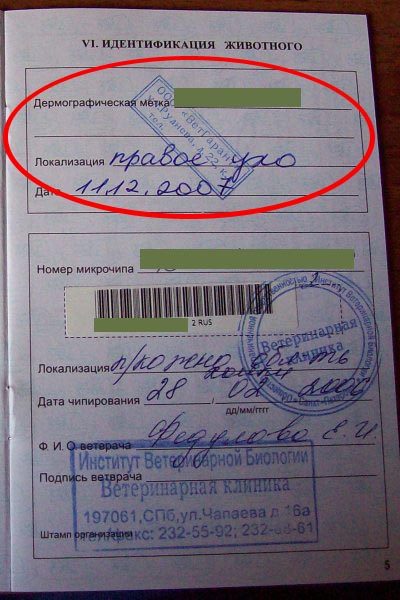 VI. ИДЕНТИФИКАЦИЯ ЖИВОТНОГО
Дермографическая метка
ООО
«ВетГарант»
тел.
Локализация правое ухо
Дата 11.12.2007
Номер микрочипа
2 RUS
Локализация п/кожно область
холки
Дата чипирования 28 02
дд/мм/гггг
Ветеринарная
клиника
Ф. И. О ветерача Федулова Е.И.
Подпись ветврача
Штамп организации
Институт Ветеринарной Биологии
Ветеринарная клиника
197061,СПб,ул.Чапаева д 16а
тел/факс: 232-55-92; 232-
5